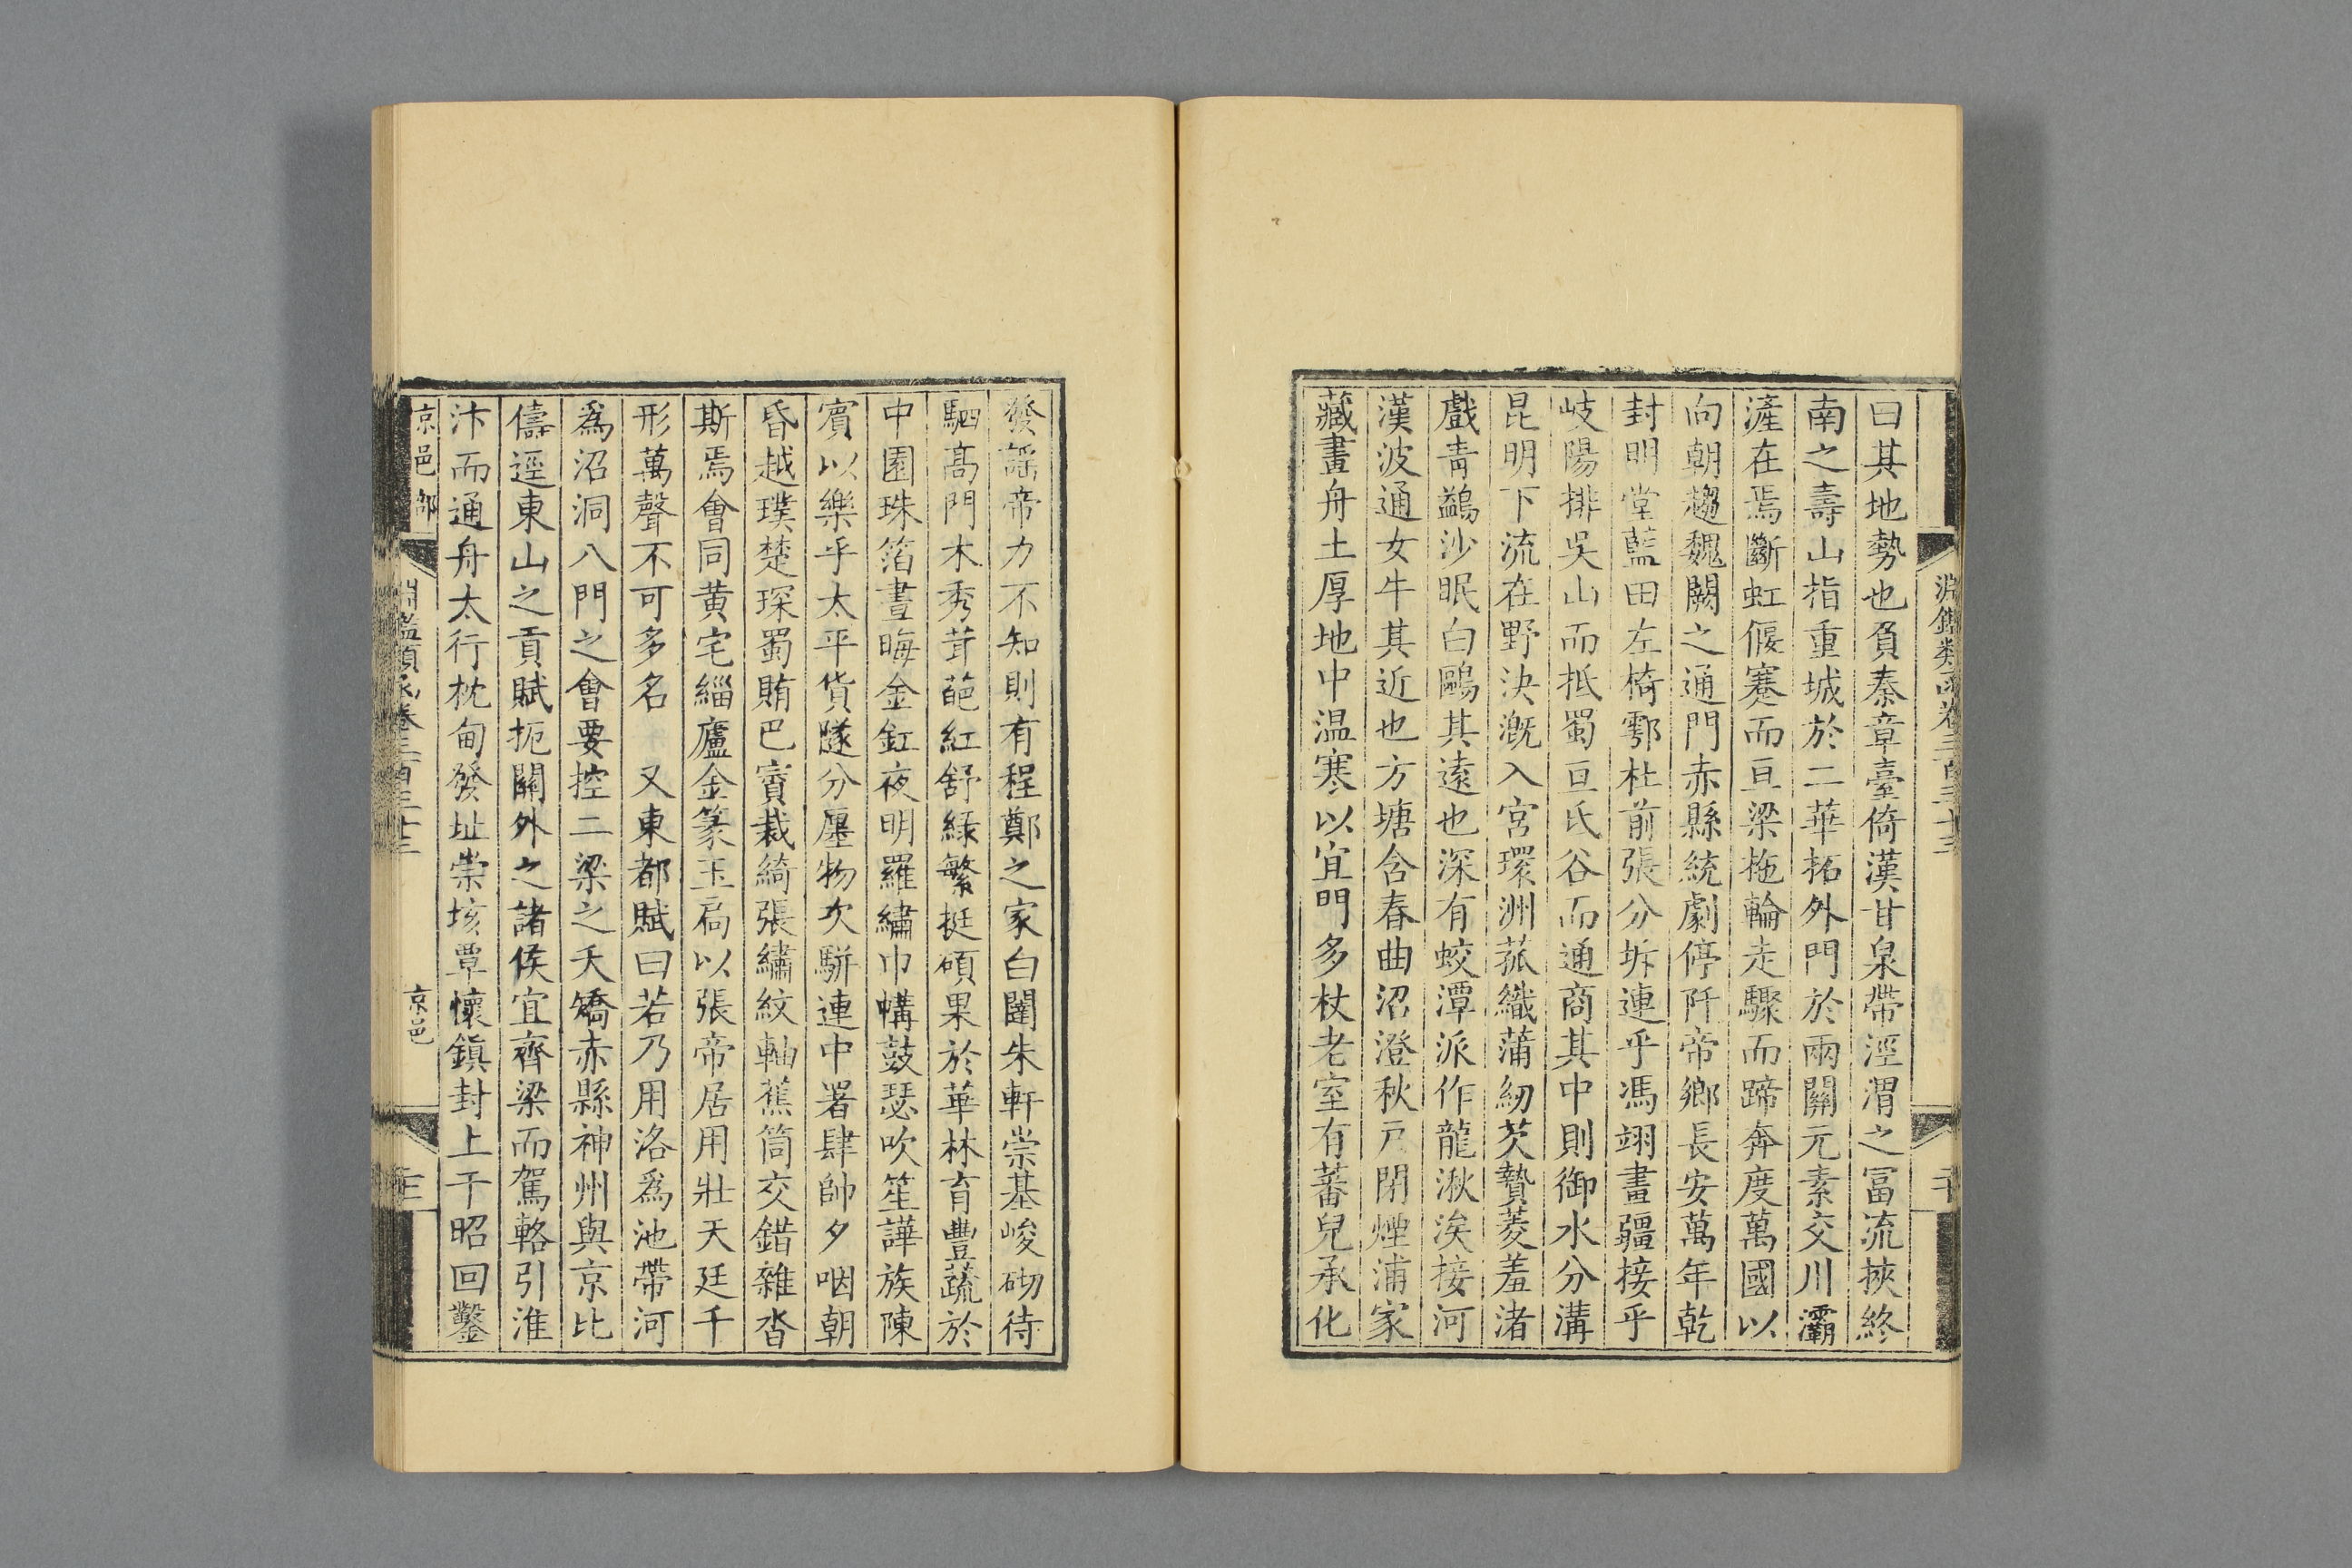 淵鑑類函卷三百三十三
二十
曰其地勢也負秦章臺倚漢甘泉帶涇渭之富流挾終
南之壽山指重城於二華拓外門於兩關元素交川灞
滻在焉斷虹偃蹇而亘梁拖輪走驟而蹄奔度萬國以
向朝趨魏闕之通門赤縣統劇停阡帝鄉長安萬年乾
封明堂藍田左椅鄠杜前張分坼連乎馮翊畫疆接乎
岐陽排吳山而抵蜀亘氐谷而通商其中則御水分溝
昆明下流在野決漑入宮環洲菰織蒲紉芡贄菱羞渚
戲靑鷁沙眠白鷗其遠也深有蛟潭派作龍湫涘接河
漢波通女牛其近也方塘含春曲沼澄秋戸閉煙浦家
藏畫舟土厚地中温寒以宜門多杖老室有蕃兒承化
發謡帝力不知則有程鄭之家白闈朱軒崇基峻砌待
駟髙門木秀茸葩紅舒綠繁挺碩果於華林育豐蔬於
中園珠箔晝晦金釭夜明羅繡巾幬鼓瑟吹笙譁族陳
賓以樂乎太平貨隧分廛物次駢連中署肆帥夕咽朝
昏越璞楚琛蜀賄巴賨裁綺張繡紋軸蕉筒交錯雜沓
斯焉會同黄宅緇廬金篆玉扃以張帝居用壯天廷千
形萬聲不可多名　又東都賦曰若乃用洛爲池帶河
爲沼洞八門之會要控二梁之夭矯赤縣神州與京比
儔逕東山之貢賦扼關外之諸侯宜齊梁而駕輅引淮
汴而通舟太行枕甸發址崇垓覃懷鎮封上干昭回鑿
京邑部
淵鑑類函卷三百三十三
京邑